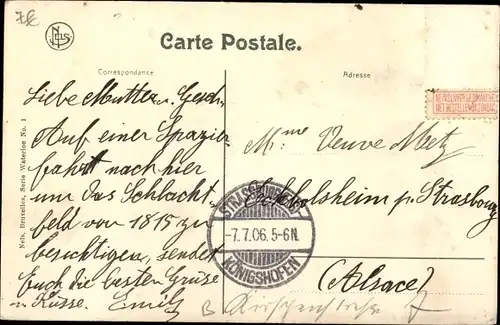 Nels
Carte Postale.
Correspondance
Adresse
Nels, Bruxelles, Serie Waterloo No. 1
Liebe Mutter u. Gesch.
Auf einer Spazier-
fahrt nach hier
um das Schlacht-
feld von 1815 zu
besichtigen, sendet
Euch die besten Grüsse
u Küsse. Emil
Mme Veuve Metz
Eckbolsheim p. Strasbourg
(Alsace)
STRASSBURG
-7.7.06. 5-6N.
KÖNIGSHOFEN